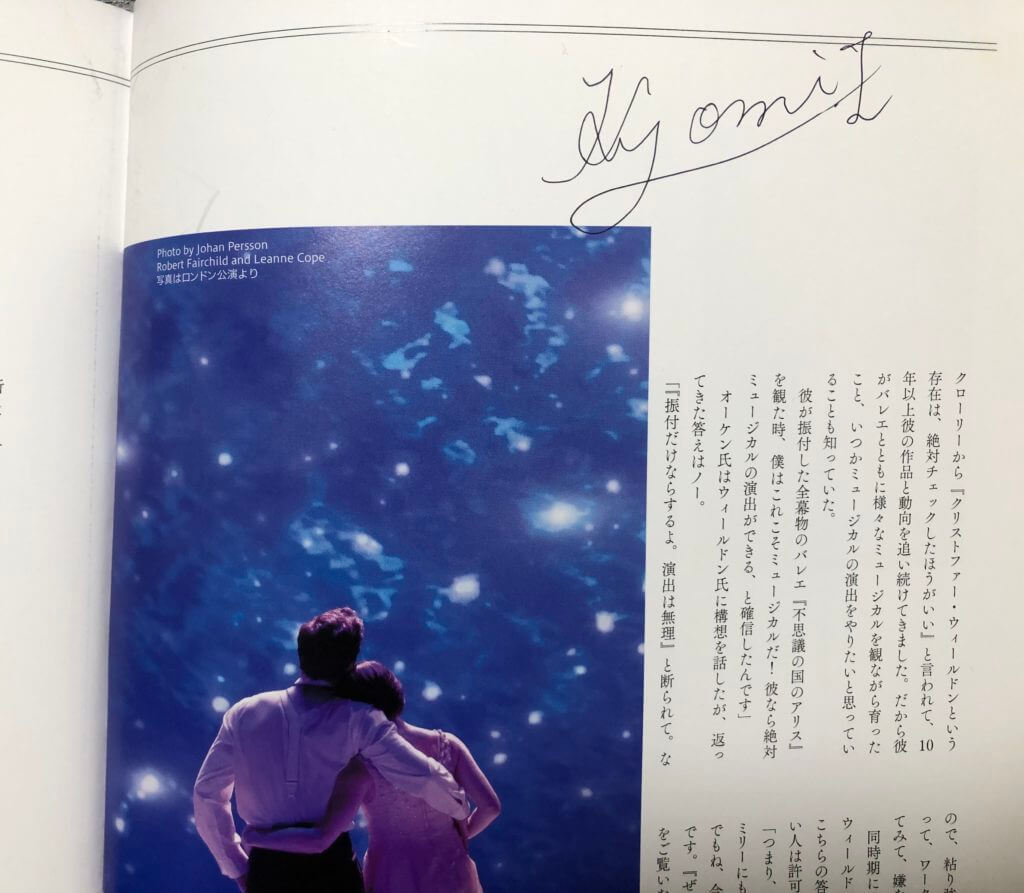 Kyomi
Photo by Johan Persson
Robert Fairchild and Leanne Cope
写真はロンドン公演より
クローリーから『クリストファー・ウィールドンという
存在は、絶対チェックしたほうがいい』と言われて、10
年以上彼の作品と動向を追い続けてきました。だから彼
がバレエとともに様々なミュージカルを観ながら育った
こと、いつかミュージカルの演出をやりたいと思ってい
ることも知っていた。
彼が振付した全幕物のバレエ『不思議の国のアリス』
を観た時、僕はこれこそミュージカルだ！彼なら絶対
ミュージカルの演出ができる、と確信したんです」
オーケン氏はウィールドン氏に構想を話したが、返っ
てきた答えはノー。
「『振付だけならするよ。演出は無理』と断られて。な
ので、粘り
って、ワー
てみて、嫌
同時期に
ウィールド
こちらの答
い人は許可
「つまり、
ミリーにも
でもね、
です。『ぜ
をご覧い